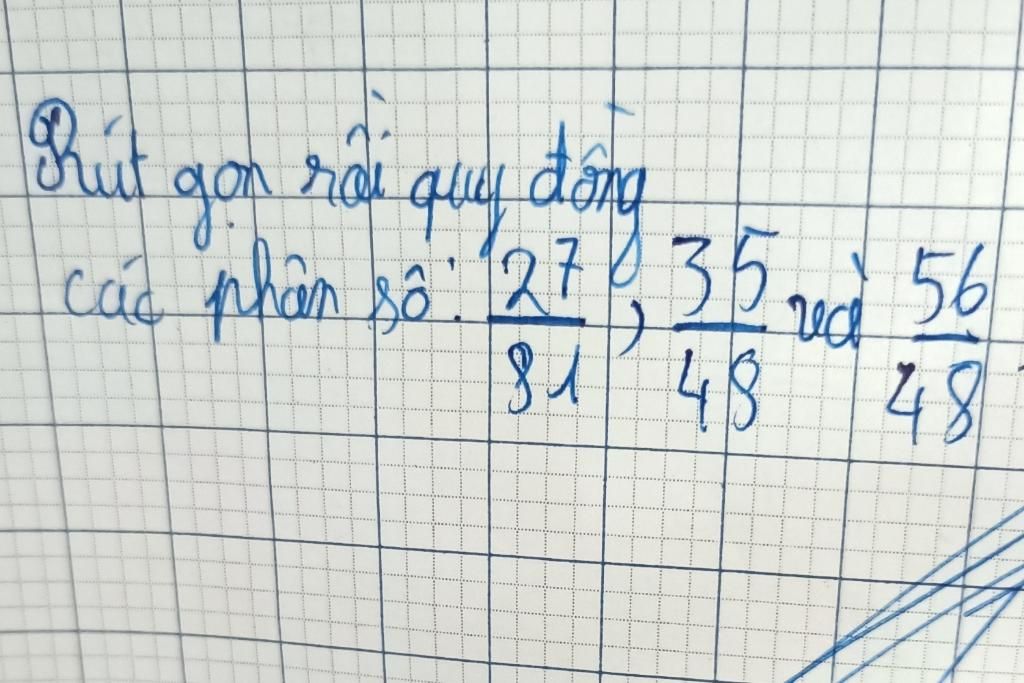 Rút gọn rồi quy đồng
các phân số: 27/81, 35/48 và 56/48